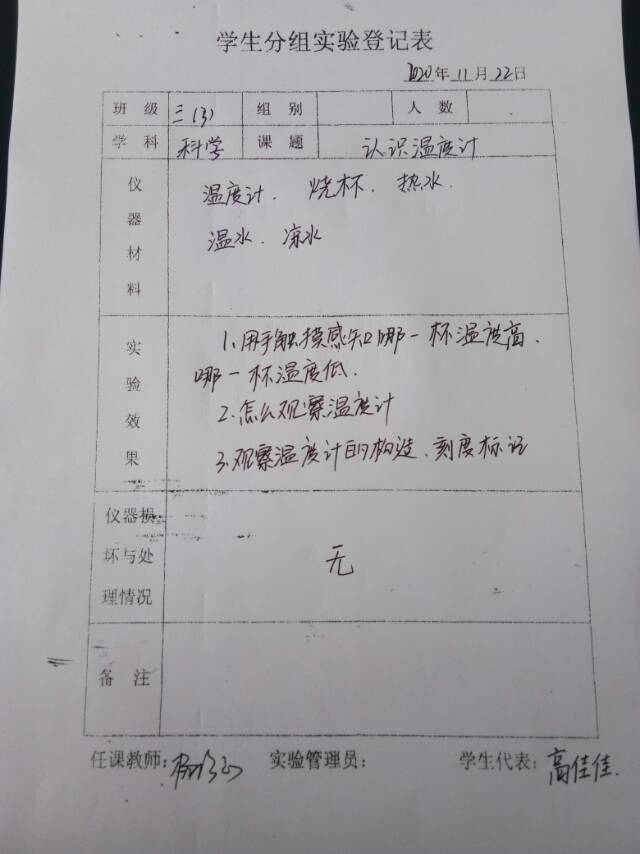 学生分组实验登记表
2020年11月22日
班级 三(3) 组别 人数
学科 科学 课题 认识温度计
仪器材料 温度计. 烧杯. 热水.
温水. 凉水
实验效果 1.用手触摸感知哪一杯温度高.
哪一杯温度低.
2.怎么观察温度计
3.观察温度计的构造.刻度标记
仪器损坏与处理情况 无
备注
任课教师: 实验管理员: 学生代表: 高佳佳.